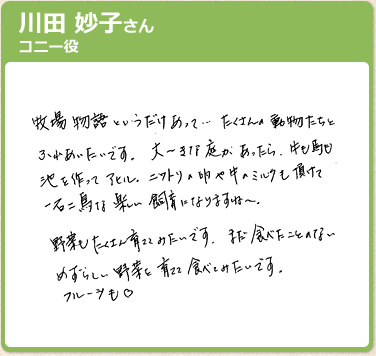 川田 妙子さん
コニー役
牧場物語というだけあって… たくさんの動物たちと
ふれあいたいです。大〜きな庭があったら、牛も馬も
池を作ってアヒル、ニワトリの卵や牛のミルクも頂けて
一石二鳥な楽しい飼育になりますね〜。
野菜もたくさん育ててみたいです。まだ食べたことのない
めずらしい野菜を育てて食べてみたいです。
フルーツも♡